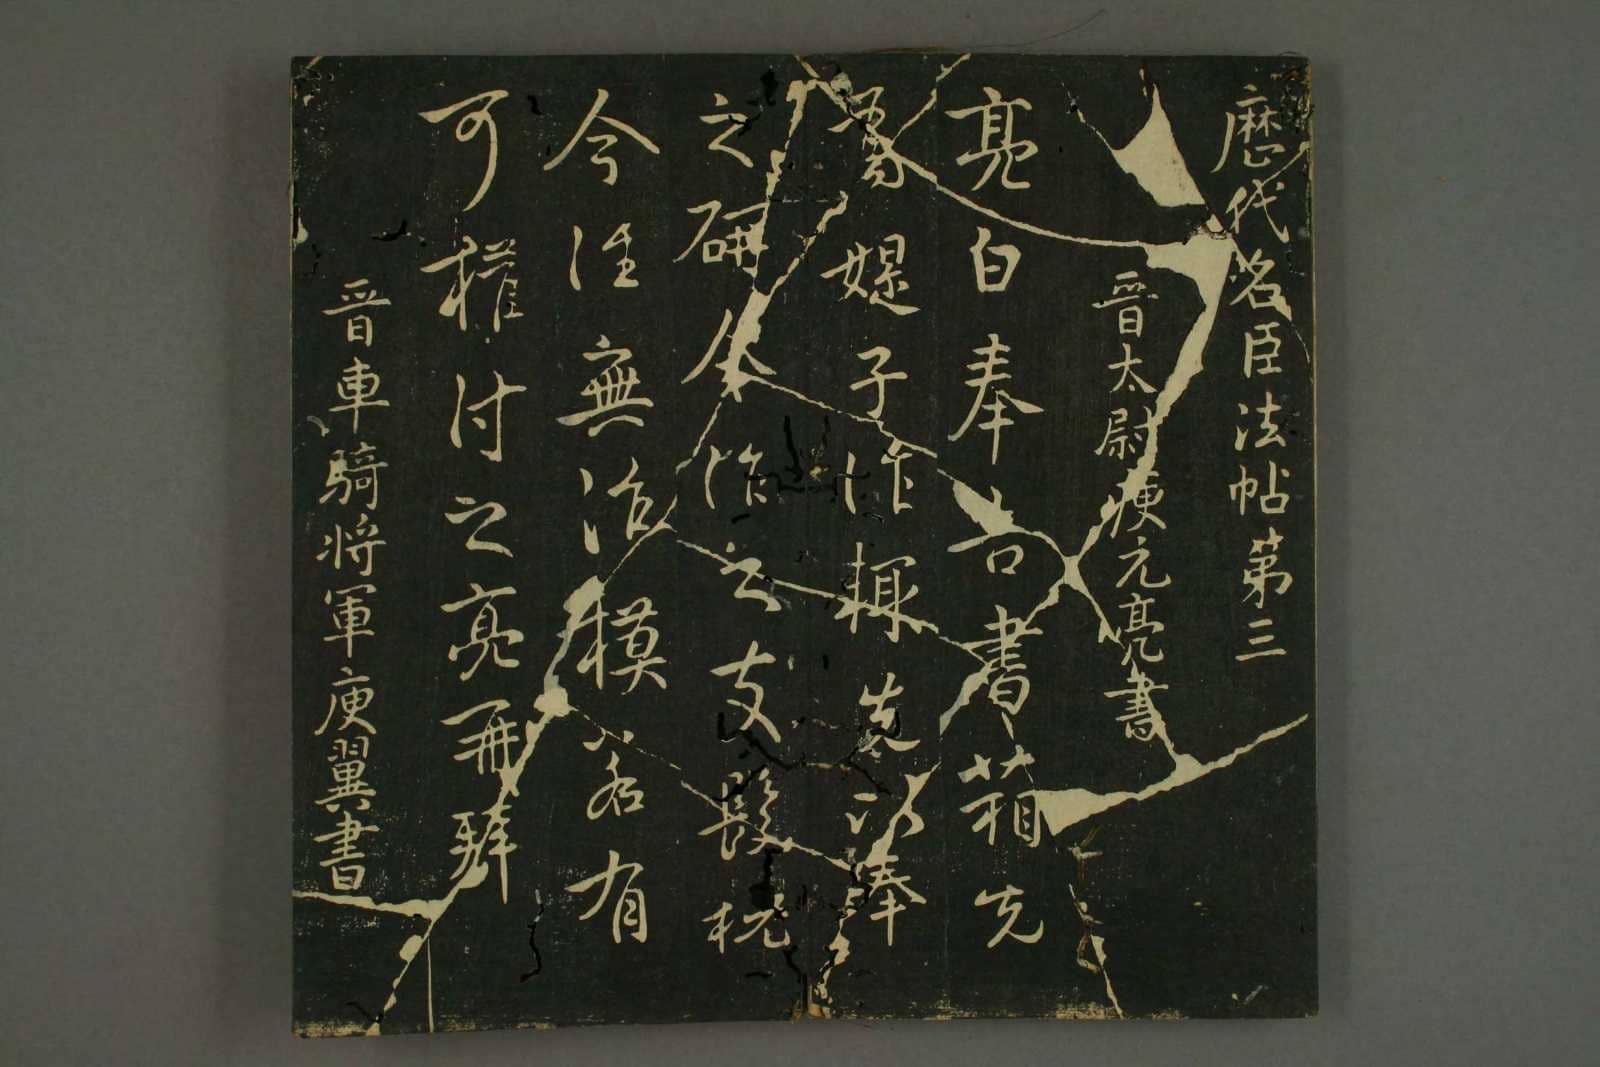 歷代名臣法帖第三
晉太尉庾元亮書
亮白奉告書箱先
媞子作揮先以奉
之研今作之支髮梳
今往無作模若有
可權付之亮再拜
晉車騎將軍庾翼書